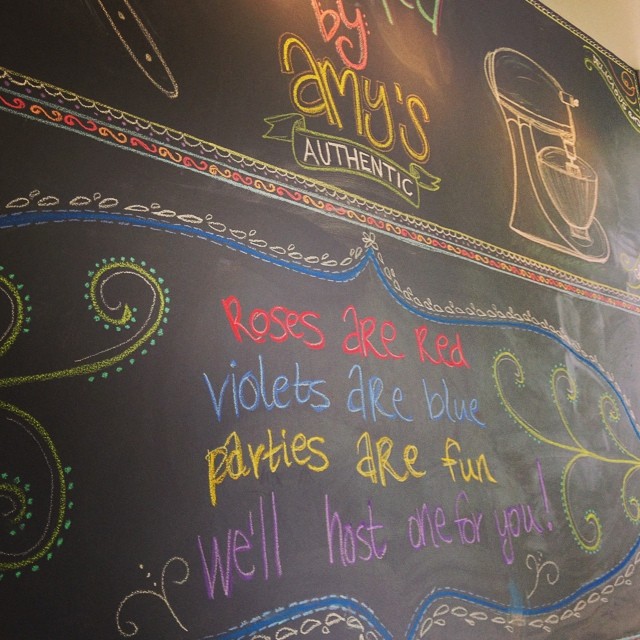 by
amy's
AUTHENTIC
Roses are Red
violets are blue
parties are fun
We'll host one for you!